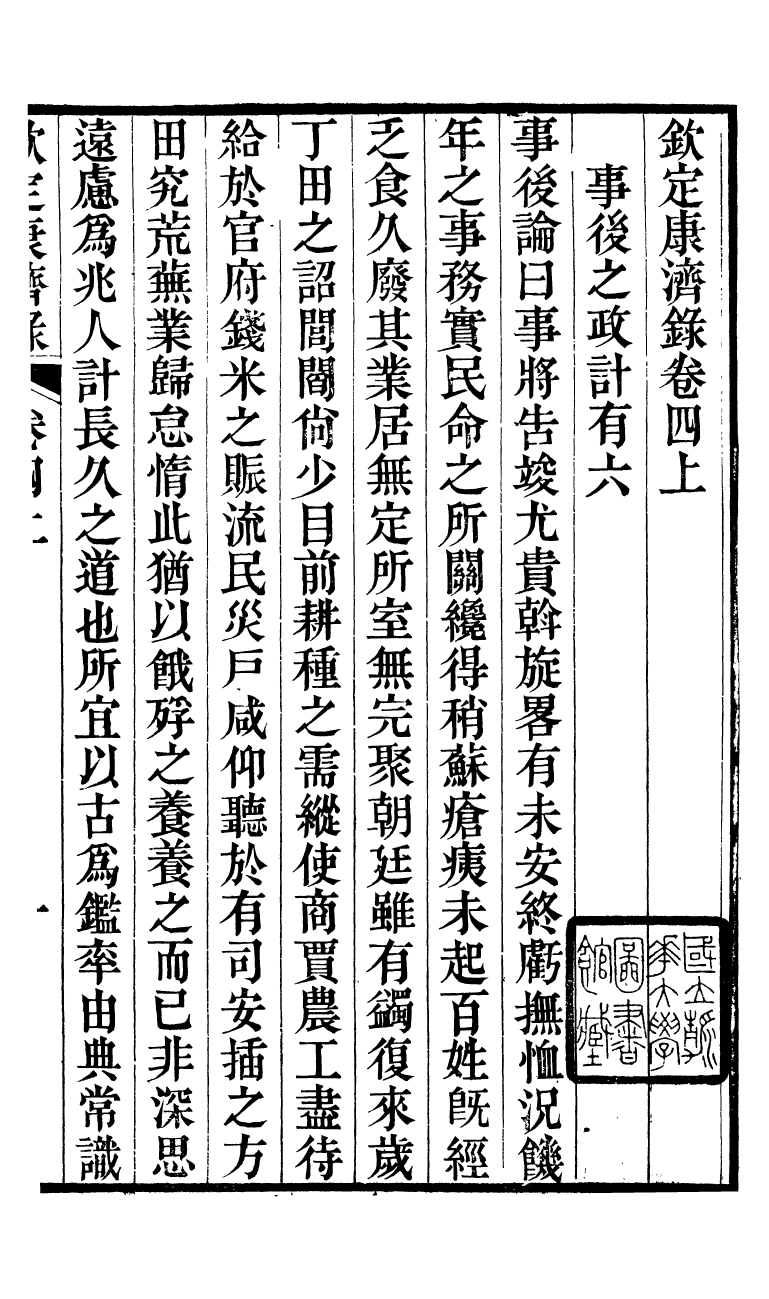 欽定康濟錄卷四上
事後之政計有六
事後論曰事將告竣尤貴斡旋畧有未安終虧撫恤況饑
年之事務實民命之所關纔得稍蘇瘡痍未起百姓旣經
乏食久廢其業居無定所室無完聚朝廷雖有蠲復來歲
丁田之詔閭閻尙少目前耕種之需縱使商賈農工盡待
給於官府錢米之賑流民災戶咸仰聽於有司安插之方
田究荒蕪業歸怠惰此猶以餓殍之養養之而已非深思
遠慮爲兆人計長久之道也所宜以古爲鑑率由典常識
欽定康濟錄 卷四上 一
國立清華大學圖書館藏